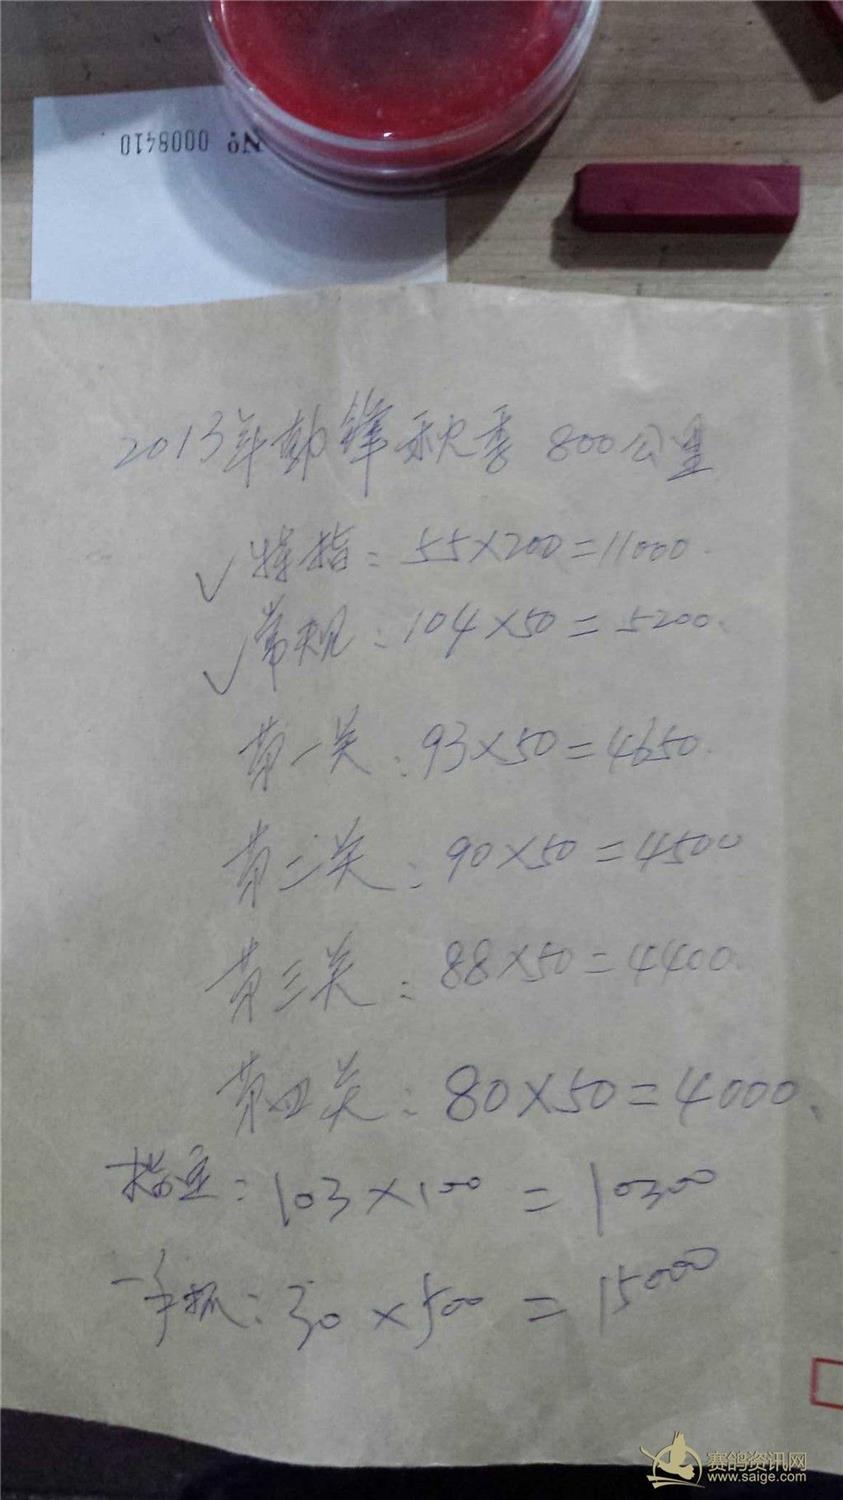 № 0008410
2013年勁锋秋季 800公里
√特指：55×200=11000.
√常规：104×50=5200.
第一关：93×50=4650.
第二关：90×50=4500
第三关：88×50=4400.
第四关：80×50=4000.
指定：103×100=10300
一手抓：30×500=15000
赛鸽资讯网
www.saige.com